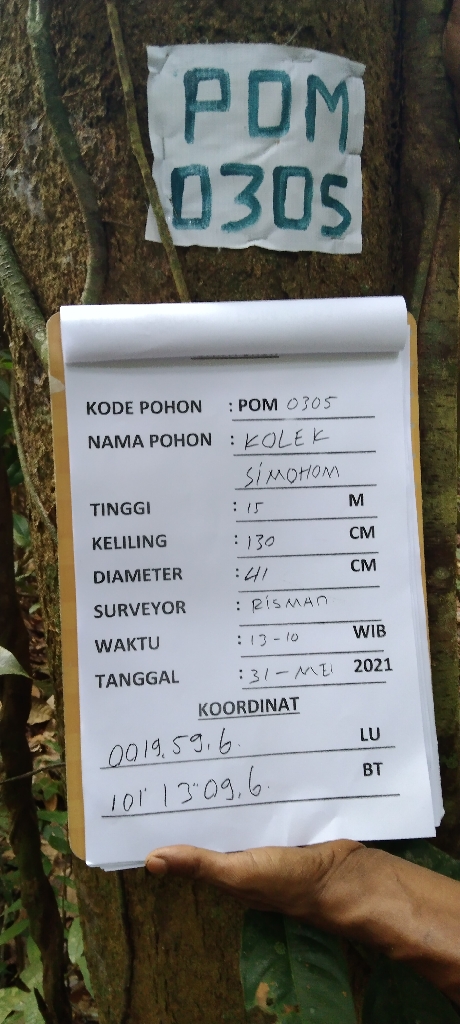 POM
0305
KODE POHON : POM 0305
NAMA POHON : KOLEK
SIMOHOM
TINGGI : 15 M
KELILING : 130 CM
DIAMETER : 41 CM
SURVEYOR : RISMAN
WAKTU : 13-10 WIB
TANGGAL : 31 - MEI 2021
KOORDINAT
0019.59.6. LU
101° 13"09.6. BT